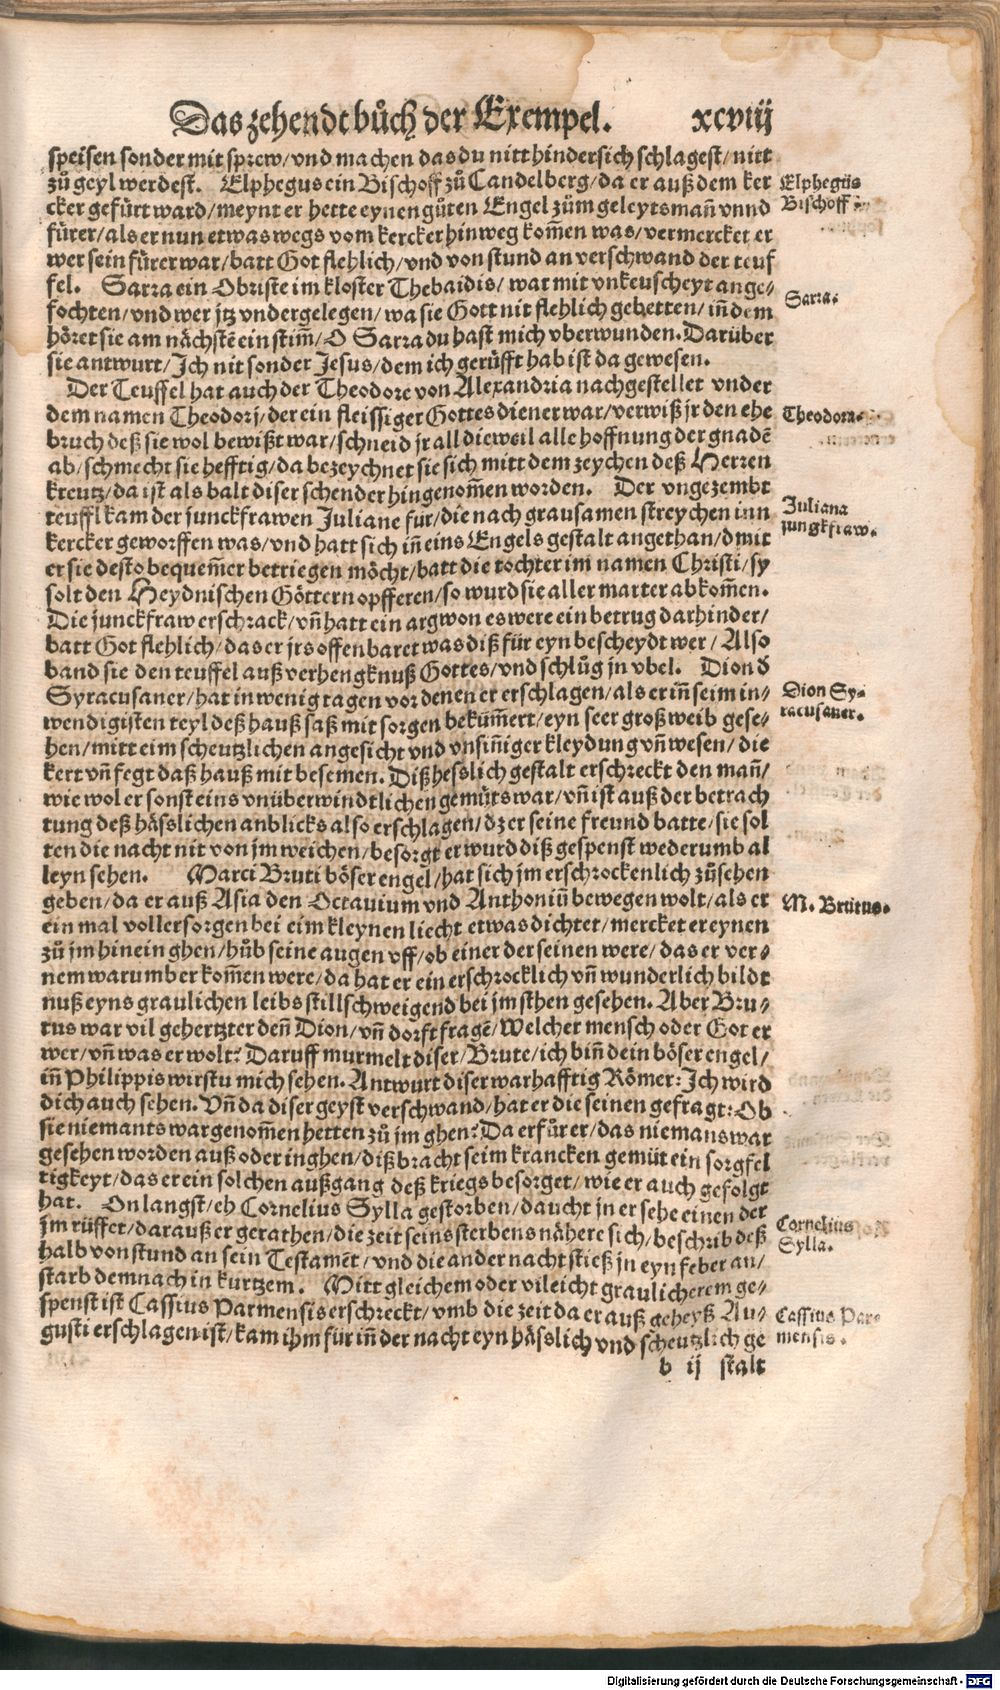 Das zehendt bůch der Exempel. xcviij
speisen sonder mit sprew/vnd machen das du nitt hindersich schlagest/nitt
zů geyl werdest. Elphegus ein Bischoff zů Candelberg/da er auß dem ker
cker gefürt ward/meynt er hette eynen gůten Engel zům geleytsmañ vnnd
fürer/als er nun etwas wegs vom kercker hinweg kom̃en was/vermercket er
wer sein fürer war/batt Got flehlich/vnd von stund an verschwand der teuf
fel. Sarra ein Obriste im kloster Thebaidis/wat mit vnkeuscheyt ange-
fochten/vnd wer jtz vndergelegen/wa sie Gott nit flehlich gebetten/iñ dem
höret sie am nächstẽ ein stim̃/O Sarra du hast mich vberwunden. Darüber
sie antwurt/Ich nit sonder Jesus/dem ich gerüfft hab ist da gewesen.
Der Teuffel hat auch der Theodore von Alexandria nachgestellet vnder
dem namen Theodorj/der ein fleissiger Gottes diener war/verwiß jr den ehe
bruch deß sie wol bewißt war/schneid jr all dieweil alle hoffnung der gnadẽ
ab/schmecht sie hefftig/da bezeychnet sie sich mitt dem zeychen deß Herren
kreutz/da ist als balt diser schender hingenom̃en worden. Der vngezembt
teuffl kam der junckfrawen Juliane für/die nach grausamen streychen inn
kercker geworffen was/vnd hatt sich iñ eins Engels gestalt angethan/dmit
er sie desto bequem̃er betriegen möcht/batt die tochter im namen Christi/sy
solt den Heydnischen Göttern opfferen/so wurd sie aller marter abkom̃en.
Die junckfraw erschrack/vñ hatt ein argwon es were ein betrug darhinder/
batt Got flehlich/das er jrs offenbaret was diß für eyn bescheydt wer/Also
band sie den teuffel auß verhengknuß Gottes/vnd schlůg jn vbel. Dion đ
Syracusaner/hat in wenig tagen vor denen er erschlagen/als er iñ seim in-
wendigisten teyl deß hauß saß mit sorgen beküm̃ert/eyn seer groß weib gese-
hen/mitt eim scheutzlichen angesicht vnd vnsiñiger kleydung vñ wesen/die
kert vñ fegt daß hauß mit besemen. Diß hesslich gestalt erschreckt den mañ/
wie wol er sonst eins vnüberwindtlichen gemüts war/vñ ist auß der betrach
tung deß hässlichen anblicks also erschlagen/dz er seine freund batte/sie sol
ten die nacht nit von jm weichen/besorgt er wurd diß gespenst wederumb al
leyn sehen. Marci Bruti böser engel/hat sich jm erschrockenlich zůsehen
geben/da er auß Asia den Octauium vnd Anthoniũ bewegen wolt/als er
ein mal voller sorgen bei eim kleynen liecht etwas dichtet/mercket er eynen
zů jm hinein ghen/hůb seine augen vff/ob einer der seinen were/das er ver-
nem warumb er kom̃en were/da hat er ein erschrocklich vñ wunderlich bildt
nuß eyns graulichen leibs stillschweigend bei jm sthen gesehen. Aber Bru-
tus war vil gehertzter deñ Dion/vñ dorft fragẽ/Welcher mensch oder Got er
wer/vñ was er wolt? Daruff murmelt diser/Brute/ich biñ dein böser engel/
iñ Philippis wirstu mich sehen. Antwurt diser warhafftig Römer: Ich wird
dich auch sehen. Vñ da diser geyst verschwand/hat er die seinen gefragt: Ob
sie niemants war genom̃en hetten zů jm ghen? Da erfůr er/das niemans war
gesehen worden auß oder inghen/diß bracht seim krancken gemüt ein sorgfel
tigkeyt/das er ein solchen außgang deß kriegs besorget/wie er auch gefolgt
hat. Onlangst/eh Cornelius Sylla gestorben/daucht jn er sehe einen der
jm rüffet/darauß er gerathen/die zeit seins sterbens nähere sich/beschrib deß
halb von stund an sein Testamẽt/vnd die ander nacht stieß jn eyn feber an/
starb demnach in kurtzem. Mitt gleichem oder vileicht graulicherem ge-
spenst ist Cassius Parmensis erschreckt/vmb die zeit da er auß geheyß Au-
gusti erschlagen ist/kam ihm für iñ der nacht eyn hässlich vnd scheutzlich ge
b ij stalt
Elphegus
Bischoff
Sarra.
Theodora.
Juliana
jungkfraw.
Dion Sy-
racusaner.
M. Brutus.
Cornelius
Sylla.
Cassius Par-
mensis.
Digitalisierung gefördert durch die Deutsche Forschungsgemeinschaft - DFG